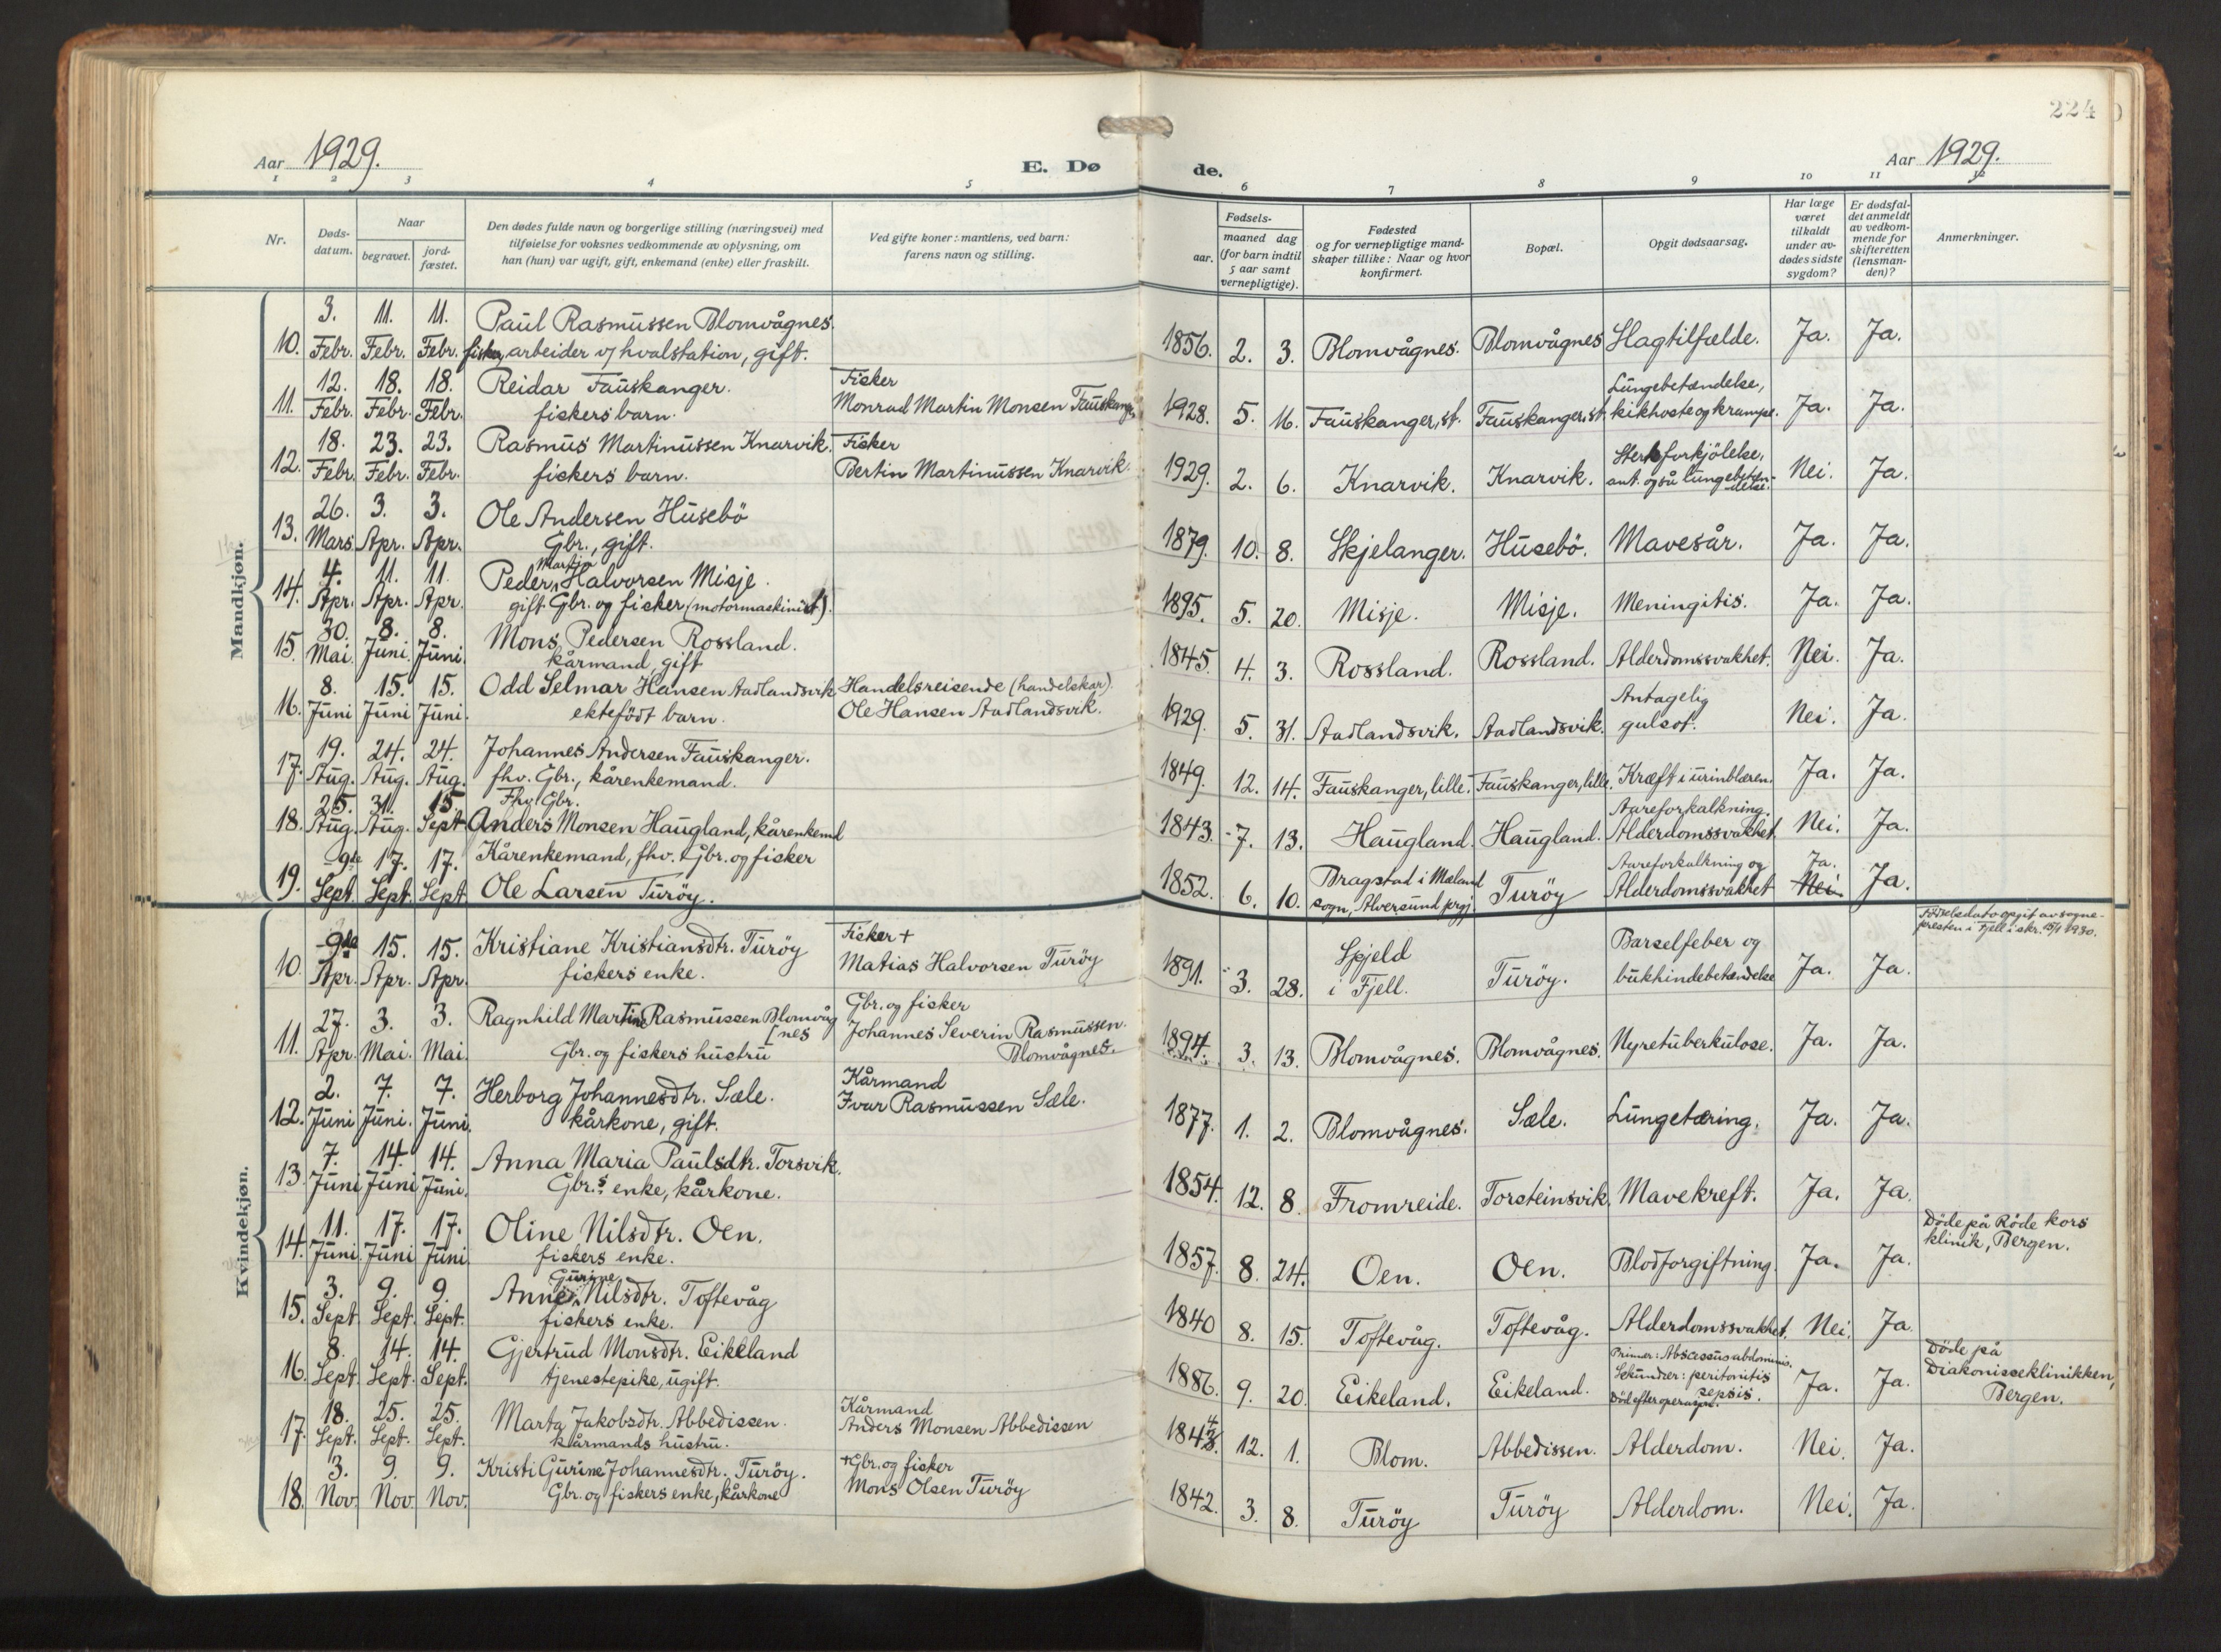 224
Aar 1929.
E. Dø
de.
Aar 1929.
1 2 3 4 5 6 7 8 9 10 11 12
Nr.
Døds-
datum.
Naar
begravet.
jord-
fæstet.
Den dødes fulde navn og borgerlige stilling (næringsvei) med
tilføielse for voksnes vedkommende av oplysning, om
han (hun) var ugift, gift, enkemand (enke) eller fraskilt.
Ved gifte koner: mandens, ved barn:
farens navn og stilling.
Fødsels-
aar.
maaned dag
(for barn indtil
5 aar samt
vernepligtige).
Fødested
og for vernepligtige mand-
skaper tillike: Naar og hvor
konfirmert.
Bopæl.
Opgit dødsaarsag.
Har læge
været
tilkaldt
under av-
dødes sidste
sygdom?
Er dødsfal-
det anmeldt
av vedkom-
mende for
skifteretten
(lensman-
den)?
Anmerkninger.
Mandkjøn.
3. 11. 11. Paul Rasmussen Blomvågnes.
10. Febr. Febr. Febr. fisker, arbeider v/ hvalstation, gift. 1856. 2. 3. Blomvågnes. Blomvågnes Slagtilfælde. Ja. Ja.
12. 18. 18. Reidar Fauskanger. Fisker Lungebetændelse,
11. Febr. Febr. Febr. fiskers barn. Monrad Martin Monsen Fauskanger 1928. 5. 16. Fauskanger, st. Fauskanger, st. kikhoste og krampe. Ja. Ja.
18. 23. 23. Rasmus Martinussen Knarvik. Fisker Sterk forkjölelse,
12. Febr. Febr. Febr. fiskers barn. Bertin Martinussen Knarvik. 1929. 2. 6. Knarvik. Knarvik. ant. også lungebeten-
delse. Nei. Ja.
26. 3. 3. Ole Andersen Husebö
13. Mars Apr. Apr. Gbr., gift. 1879. 10. 8. Skjelanger. Husebö. Mavesår. Ja. Ja.
Martin
4. 11. 11. Peder Halvorsen Misje.
14. Apr. Apr. Apr. gift. Gbr. og fisker (motormaskinist). 1895. 5. 20. Misje. Misje. Meningitis. Ja. Ja.
30. 8. 8. Mons Pedersen Rossland.
15. Mai. Juni. Juni. kårmand, gift 1845. 4. 3. Rossland. Rossland. Alderdomssvakhet. Nei. Ja.
8. 15. 15. Odd Selmar Hansen Aadlandsvik Handelsreisende (handelskar). Antagelig
16. Juni Juni Juni. ektefödt barn. Ole Hansen Aadlandsvik. 1929. 5. 31. Aadlandsvik. Aadlandsvik. gulsot. Nei. Ja.
19. 24. 24. Johannes Andersen Fauskanger.
17. Aug. Aug. Aug. fhv. Gbr., kårenkemand. 1849. 12. 14. Fauskanger, lille. Fauskanger, lille. Kræft i urinblæren. Ja. Ja.
25. 31. 15. Fhv. Gbr. Aareforkalkning.
18. Aug. Aug. Sept Anders Monsen Haugland, kårenkemd 1843. 7. 13. Haugland. Haugland. Alderdomssvakhet Nei. Ja.
9de 17. 17. Kårenkemand, fhv. Gbr. og fisker Bragstad i Mæland Aareforkalkning og Ja.
19. Sept. Sept. Sept Ole Larsen Turöy. 1852. 6. 10. sogn, Alversund prgj. Turöy Alderdomssvakhet Nei Ja.
Kvindekjøn.
Fødselsdato opgit av sogne-
presten i Fjell i skr. 15/1 1930.
9de 15. 15. Kristiane Kristiansdtr. Turöy Fisker + Spjeld Barselfeber og
10. Apr. Apr. Apr. fiskers enke. Matias Halvorsen Turöy 1891. 3. 28. i Fjell. Turöy. bukhindebetændelse Ja. Ja.
27. 3. 3. Ragnhild Martine Rasmussen Blomvåg Gbr. og fisker
[nes Johannes Severin Rasmussen
11. Apr. Mai. Mai. Gbr. og fiskers hustru Blomvågnes. 1894. 3. 13. Blomvågnes. Blomvågnes. Nyretuberkulose. Ja. Ja.
2. 7. 7. Herborg Johannesdtr. Sæle. Kårmand
12. Juni Juni. Juni. kårkone, gift. Ivar Rasmussen Sæle. 1877. 1. 2. Blomvågnes. Sæle. Lungetæring. Ja. Ja.
7. 14. 14. Anna Maria Paulsdtr. Torsvik.
13. Juni Juni Juni. Gbr.s enke, kårkone. 1854. 12. 8. Fromreide. Torsteinsvik. Mavekreft. Ja. Ja.
11. 17. 17. Oline Nilsdtr. Oen. Döde på Röde kors
14. Juni. Juni Juni fiskers enke. 1857. 8. 24. Oen. Oen. Blodforgiftning. Ja. Ja. klinik, Bergen.
Gurine
3. 9. 9. Anne Nilsdtr. Toftevåg
15. Sept. Sept. Sept. fiskers enke. 1840 8. 15. Toftevåg. Toftevåg. Alderdomssvakhet. Nei. Ja.
8. 14. 14. Gjertrud Monsdtr. Eikeland Primær: Abscessus abdominis. Döde på
16. Sept. Sept. Sept. tjenestepike, ugift. 1886. 9. 20. Eikeland. Eikeland. Sekundær: peritonitis
sepsis.
Död efter operasjon. Ja. Ja. Diakonisseklinikken,
Bergen.
18. 25. 25. Marta Jakobsdtr. Abbedissen. Kårmand
17. Sept. Sept. Sept. kårmands hustru. Anders Monsen Abbedissen 1842. 12. 1. Blom. Abbedissen. Alderdom. Nei. Ja.
3. 9. 9. Kristi Gurine Johannesdtr. Turöy. +Gbr. og fisker
18. Nov. Nov. Nov. Gbr. og fiskers enke, kårkone Mons Olsen Turöy 1842. 3. 8. Turöy Turöy Alderdom. Nei. Ja.